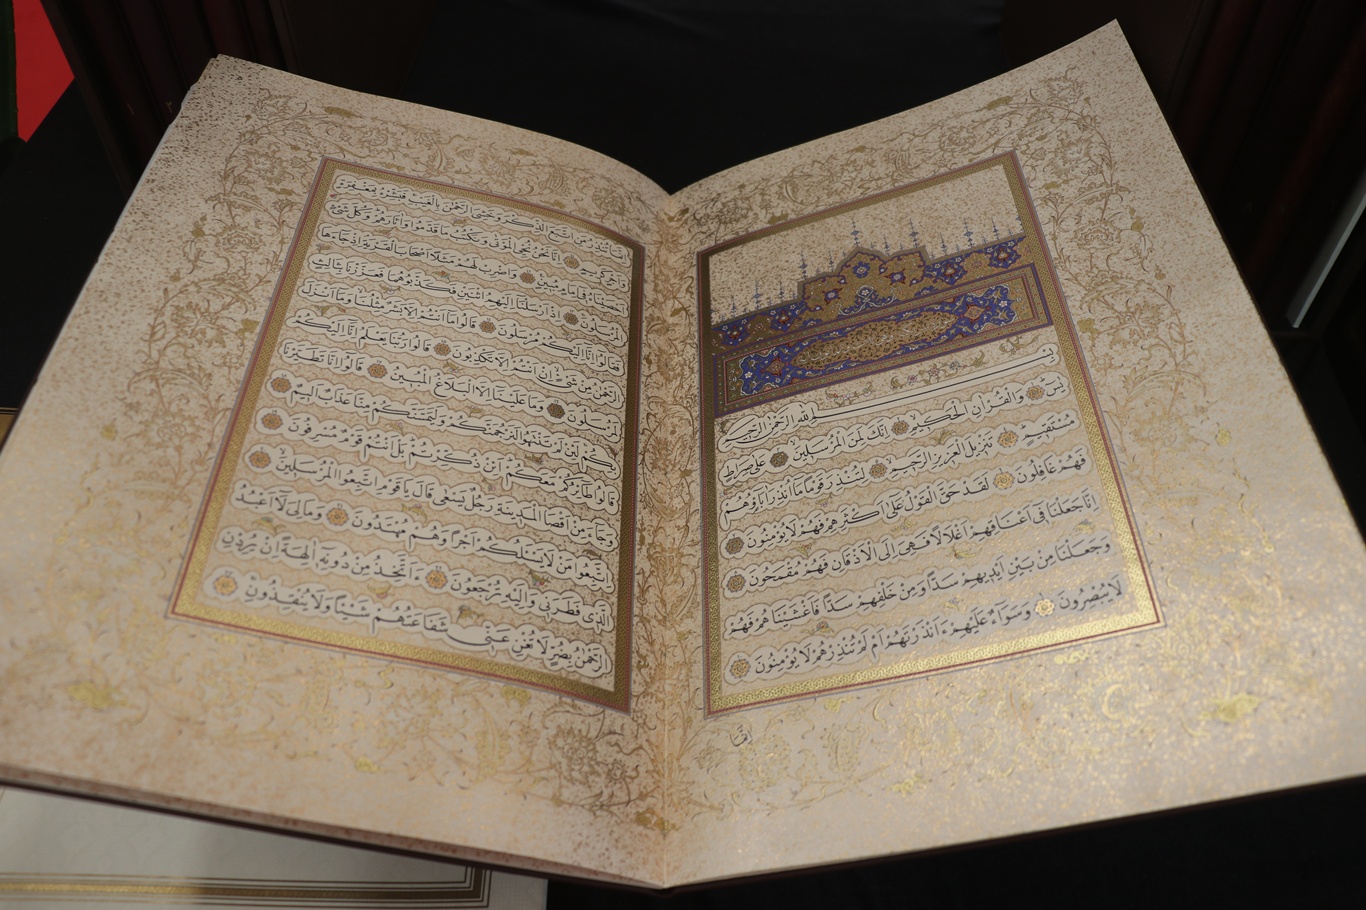 بِسْمِ اللهِ الرَّحْمٰنِ الرَّحِيمِ
يٰسٓ ۝ وَالْقُرْاٰنِ الْحَكِيمِ ۝ اِنَّكَ لَمِنَ الْمُرْسَلِينَ ۝ عَلٰى صِرَاطٍ
مُسْتَقِيمٍ ۝ تَنْزِيلَ الْعَزِيزِ الرَّحِيمِ ۝ لِتُنْذِرَ قَوْمًا مَا اُنْذِرَ اٰبَاؤُهُمْ
فَهُمْ غَافِلُونَ ۝ لَقَدْ حَقَّ الْقَوْلُ عَلٰى اَكْثَرِهِمْ فَهُمْ لَا يُؤْمِنُونَ ۝
اِنَّا جَعَلْنَا فِى اَعْنَاقِهِمْ اَغْلَالًا فَهِىَ اِلَى الْاَذْقَانِ فَهُمْ مُقْمَحُونَ ۝
وَجَعَلْنَا مِنْ بَيْنِ اَيْدِيهِمْ سَدًّا وَمِنْ خَلْفِهِمْ سَدًّا فَاَغْشَيْنَاهُمْ فَهُمْ
لَا يُبْصِرُونَ ۝ وَسَوَاءٌ عَلَيْهِمْ ءَاَنْذَرْتَهُمْ اَمْ لَمْ تُنْذِرْهُمْ لَا يُؤْمِنُونَ ۝
اِنَّمَا
اِنَّمَا تُنْذِرُ مَنِ اتَّبَعَ الذِّكْرَ وَخَشِىَ الرَّحْمٰنَ بِالْغَيْبِ فَبَشِّرْهُ بِمَغْفِرَةٍ
وَاَجْرٍ كَرِيمٍ ۝ اِنَّا نَحْنُ نُحْىِ الْمَوْتٰى وَنَكْتُبُ مَا قَدَّمُوا وَاٰثَارَهُمْ وَكُلَّ شَىْءٍ
اَحْصَيْنَاهُ فِى اِمَامٍ مُبِينٍ ۝ وَاضْرِبْ لَهُمْ مَثَلًا اَصْحَابَ الْقَرْيَةِ اِذْ جَاءَهَا
الْمُرْسَلُونَ ۝ اِذْ اَرْسَلْنَا اِلَيْهِمُ اثْنَيْنِ فَكَذَّبُوهُمَا فَعَزَّزْنَا بِثَالِثٍ
فَقَالُوا اِنَّا اِلَيْكُمْ مُرْسَلُونَ ۝ قَالُوا مَا اَنْتُمْ اِلَّا بَشَرٌ مِثْلُنَا وَمَا اَنْزَلَ
الرَّحْمٰنُ مِنْ شَىْءٍ اِنْ اَنْتُمْ اِلَّا تَكْذِبُونَ ۝ قَالُوا رَبُّنَا يَعْلَمُ اِنَّا اِلَيْكُمْ
لَمُرْسَلُونَ ۝ وَمَا عَلَيْنَا اِلَّا الْبَلَاغُ الْمُبِينُ ۝ قَالُوا اِنَّا تَطَيَّرْنَا
بِكُمْ لَئِنْ لَمْ تَنْتَهُوا لَنَرْجُمَنَّكُمْ وَلَيَمَسَّنَّكُمْ مِنَّا عَذَابٌ اَلِيمٌ ۝
قَالُوا طَائِرُكُمْ مَعَكُمْ اَئِنْ ذُكِّرْتُمْ بَلْ اَنْتُمْ قَوْمٌ مُسْرِفُونَ ۝
وَجَاءَ مِنْ اَقْصَا الْمَدِينَةِ رَجُلٌ يَسْعٰى قَالَ يَا قَوْمِ اتَّبِعُوا الْمُرْسَلِينَ ۝
اِتَّبِعُوا مَنْ لَا يَسْئَلُكُمْ اَجْرًا وَهُمْ مُهْتَدُونَ ۝ وَمَالِىَ لَا اَعْبُدُ
الَّذِى فَطَرَنِى وَاِلَيْهِ تُرْجَعُونَ ۝ ءَاَتَّخِذُ مِنْ دُونِهِ اٰلِهَةً اِنْ يُرِدْنِ
الرَّحْمٰنُ بِضُرٍّ لَا تُغْنِ عَنِّى شَفَاعَتُهُمْ شَيْئًا وَلَا يُنْقِذُونِ ۝